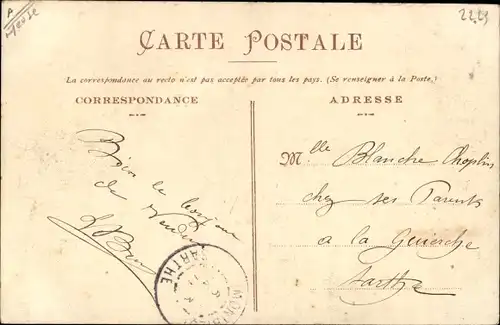 Meuse
2229
CARTE POSTALE
La correspondance au recto n'est pas acceptée par tous les pays. (Se renseigner à la Poste.)
CORRESPONDANCE
ADRESSE
Bien le bonjour
de
Mlle Blanche Choplin
chez ses Parents
a la Guierche
Sarthe
SARTHE